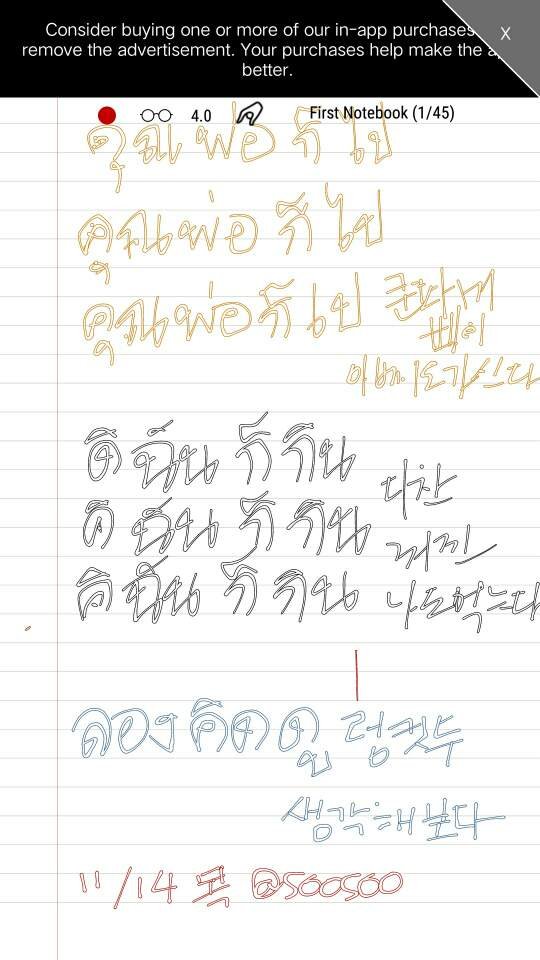 Consider buying one or more of our in-app purchases
remove the advertisement. Your purchases help make the
better.
X
4.0 First Notebook (1/45)
คุณ พ่อ ก็ ไป
คุณ พ่อ ก็ ไป
คุณ พ่อ ก็ ไป
ดิฉัน ก็ กิน
디찬
ดิฉัน ก็ กิน
꺼낀
ดิฉัน ก็ กิน 나도먹는다
ลองคิดดู 렁킷두
생각해보다
11/14 목 @500500